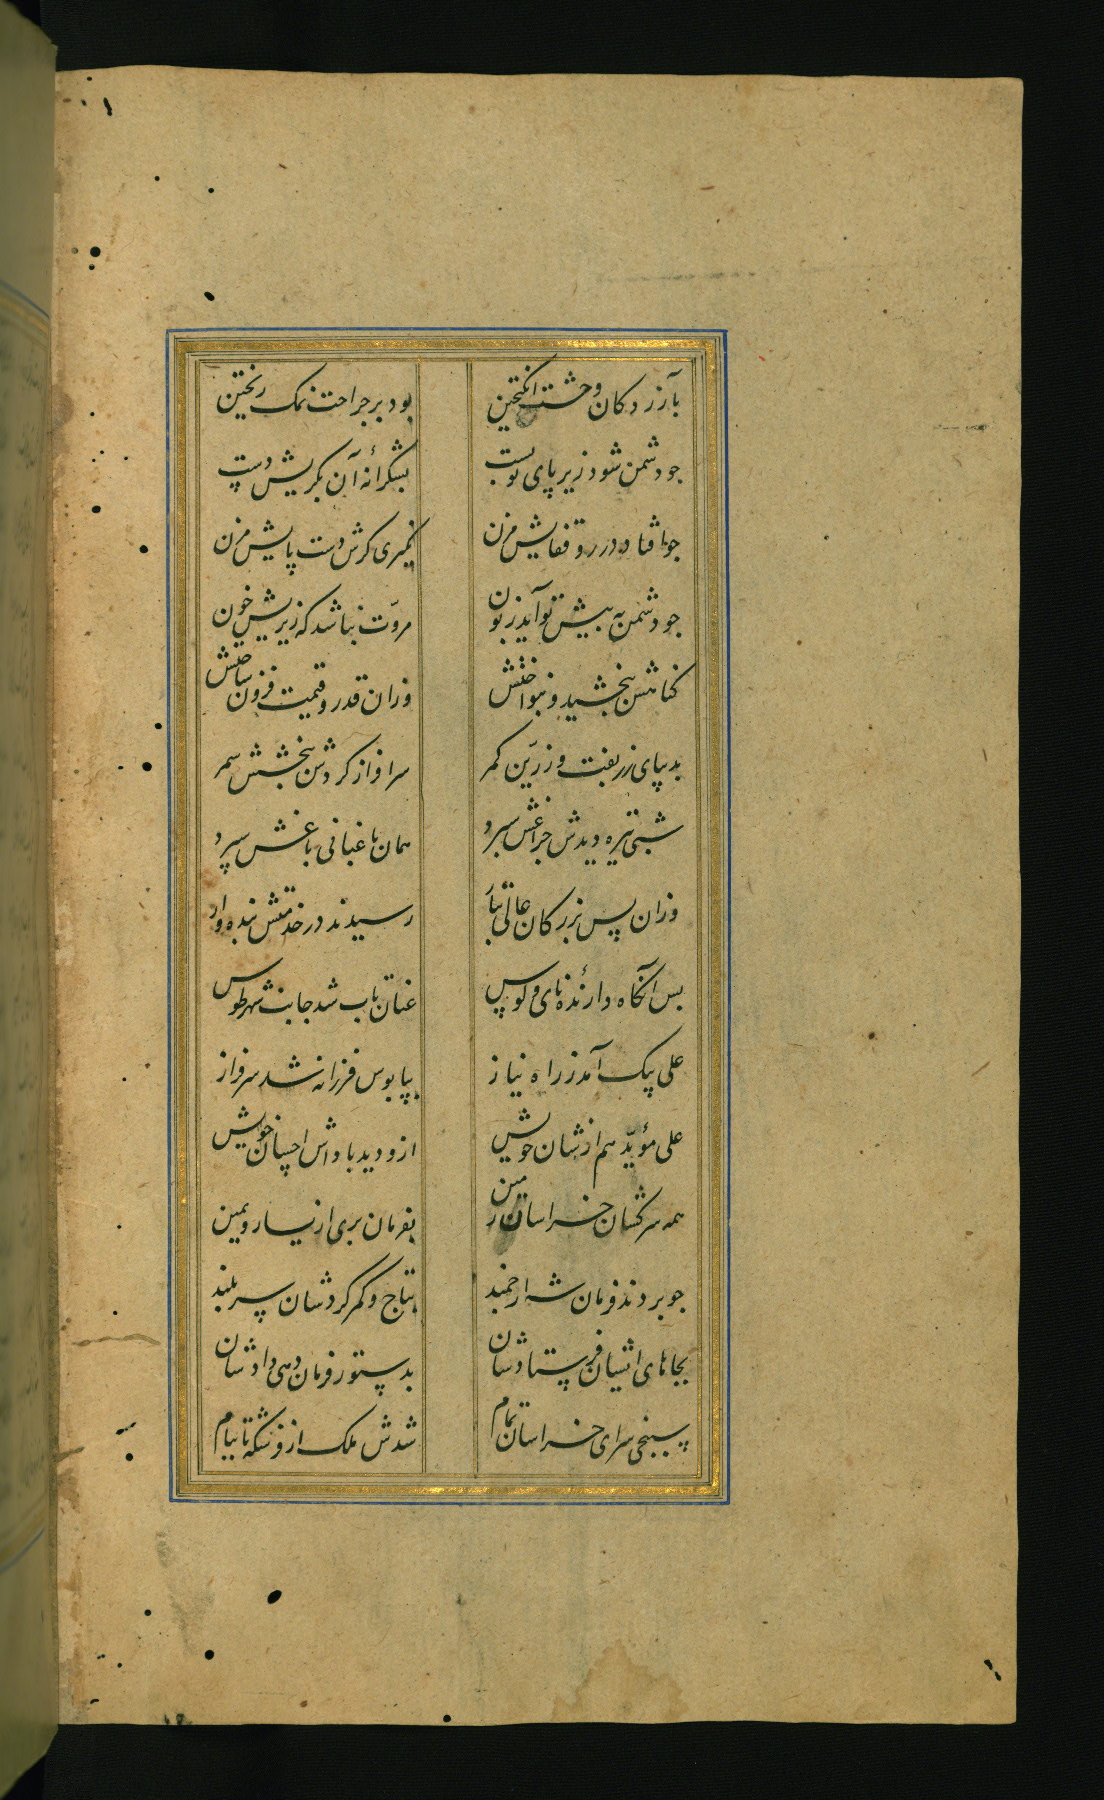 بآزردکان وحشت انکیختن بود بر جراحت نمک ریختن
جو دشمن شود زیر پای تو پست بشکرانهٔ آن بکیرش دست
جو افتاد در رو قفایش مزن نمیری کرش دست پایش مزن
جو دشمن به پیش تو آید زبون مروّت نباشد که ریزیش خون
کناهش ببخشید و بنواختش وزان قدر و قیمت فزون ساختش
بدیبای زربفت و زرّین کمر سرافراز کردش ببخشش سمر
شبی تیره دیدش جراغش سپرد همان باغبانی باغش سپرد
وزان پس بزرکان عالی تبار رسیدند در خدمتش بنده وار
پس آنکاه دارندهٔ نای و کوس عنان تاب شد جانب شهر طوس
علی بیک آمد ز راه نیاز بپابوس فرزانه شد سرفراز
علی مؤیّد هم از شان خویش ازو دید باداش احسان خویش
همه سرکشان خراسان زمین بفرمان بری از یسار و یمین
جو بردند فرمان شه ارجمند بتاج و کمر کردشان سر بلند
بجاهای ایشان فرستادشان بدستور فرمان دهی دادشان
سپنجی سرای خراسان تمام شدش ملک از وشکه تا بیام